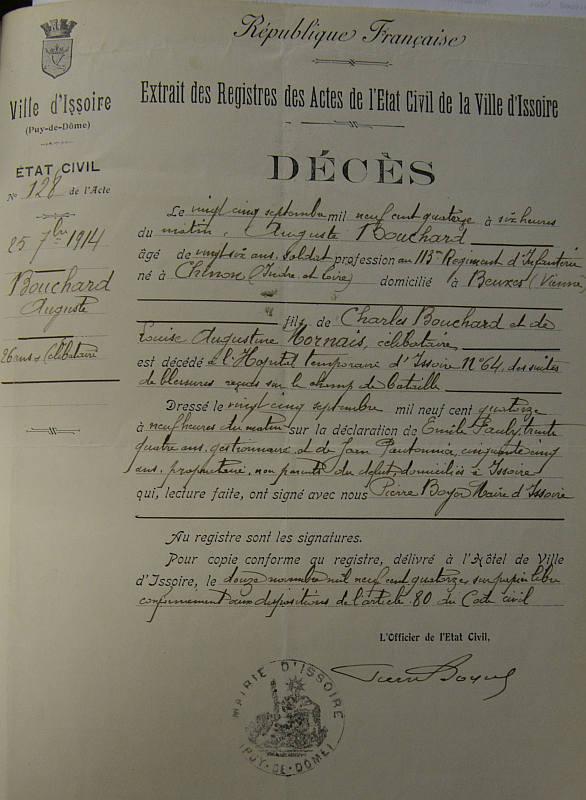 République Française
Ville d'Issoire
(Puy-de-Dôme)
ÉTAT CIVIL
No 128 de l'Acte
25 7bre 1914
Bouchard
Auguste
26 ans Célibataire
Extrait des Registres des Actes de l'Etat Civil de la Ville d'Issoire
DÉCÈS
Le vingt cinq septembre mil neuf cent quatorze à six heures
du matin, Auguste Bouchard
âgé de vingt six ans, soldat profession au 113me Regiment d'Infanterie
né à Chinon (Indre et Loire) domicilié à Beuxes (Vienne)
fils de Charles Bouchard et de
Louise Augustine Hornais, célibataire,
est décédé à l'Hopital temporaire d'Issoire No 64, des suites
de blessures reçues sur le champ de bataille
Dressé le vingt cinq septembre mil neuf cent quatorze
à neuf heures du matin sur la déclaration de Emile Pauly, trente
quatre ans, gestionnaire et de Jean cinquante cinq
ans, propriétaire, non parents du défunt, domiciliés à Issoire
qui, lecture faite, ont signé avec nous Pierre Boyer Maire d'Issoire
Au registre sont les signatures.
Pour copie conforme au registre, délivré à l'Hôtel de Ville
d'Issoire, le douze novembre mil neuf cent quatorze sur papier libre
conformément aux dispositions de l'article 80 du Code civil
L'Officier de l'Etat Civil,
Pierre Boyer
MAIRIE D'ISSOIRE
(PUY-DE-DÔME)